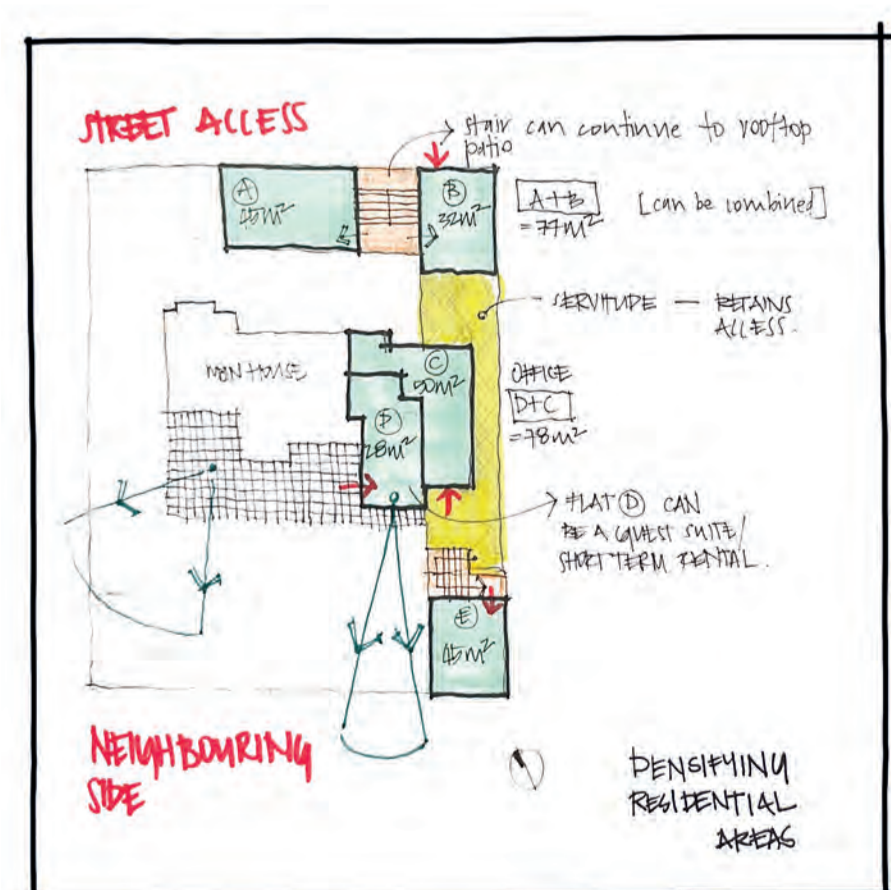 STREET ACCESS
stair can continue to rooftop
patio
A
45m²
B
32m²
A+B
=77m²
[can be combined]
SERVITUDE — RETAINS
ACCESS.
MAIN HOUSE
C
50m²
OFFICE
D+C
=78m²
D
28m²
FLAT D CAN
BE A GUEST SUITE/
SHORT TERM RENTAL.
E
45m²
NEIGHBOURING
SIDE
DENSIFYING
RESIDENTIAL
AREAS